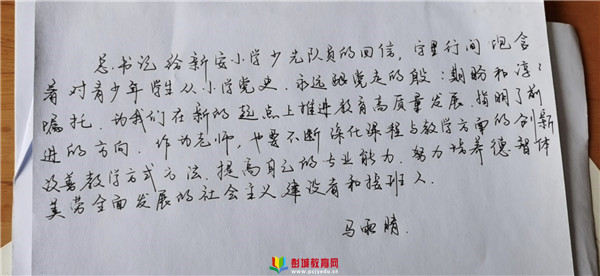 总书记给新安小学少先队员的回信，字里行间饱含
着对青少年学生从小学党史、永远跟党走的殷殷期盼和谆谆
嘱托，为我们在新的起点上推进教育高质量发展，指明了前
进的方向。作为老师，也要不断深化课程与教学方面的创新
改善教学方式方法，提高自己的专业能力，努力培养德智体
美劳全面发展的社会主义建设者和接班人。
马雨晴
彭城教育网
www.pcjyedu.cn